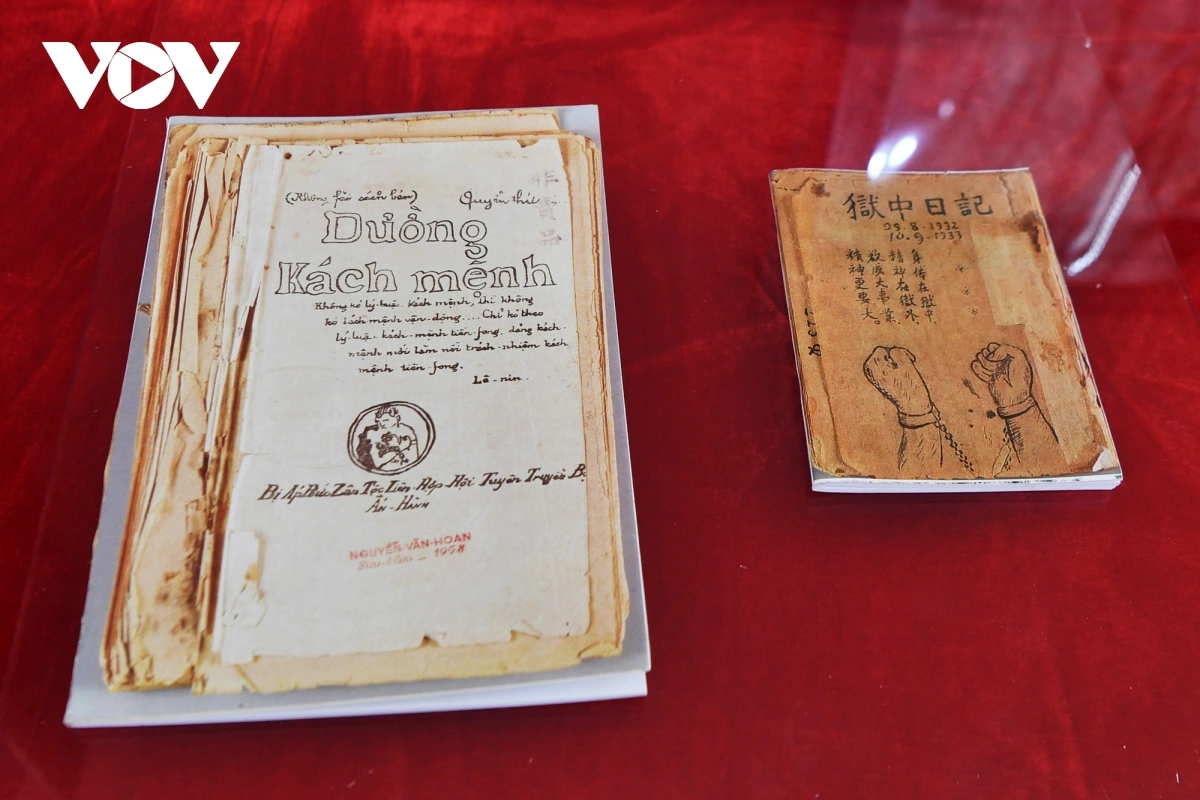 VOV
(Không fải sách bán) Quyển thứ
非賣品
Đường
Kách mệnh
Không kó lý-luận kách mệnh, thì không
kó kách mệnh vận-động.... Chỉ kó theo
lý-luận kách-mệnh tiên-fong, đảng kách-
mệnh mới làm nổi trách-nhiệm kách
mệnh tiên-fong.
Lê-nin.
Bị Áp Bức Zân Tộc Liên Hợp Hội Tuyên Truyền Bộ
Ấn-Hành
NGUYỄN-VĂN-HOAN
1958
獄中日記
29.8.1932
10.9.1933
身体在獄中
精神在獄外
欲成大事業
精神更要大。